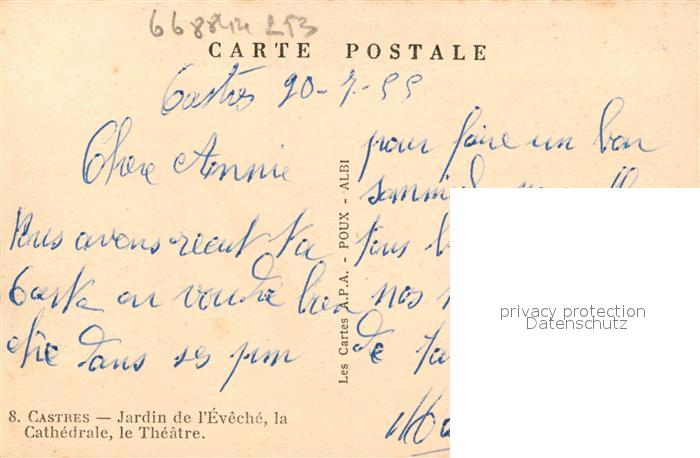 668844 LT3
CARTE POSTALE
Castres 20-7-55
Chere Annie
Nous avons recut ta
Carte on voudré bien
etre dans ses
pour faire un bon
tous
nos
de
Les Cartes A.P.A. - POUX - ALBI
8. CASTRES — Jardin de l'Évêché, la
Cathédrale, le Théâtre.
privacy protection
Datenschutz